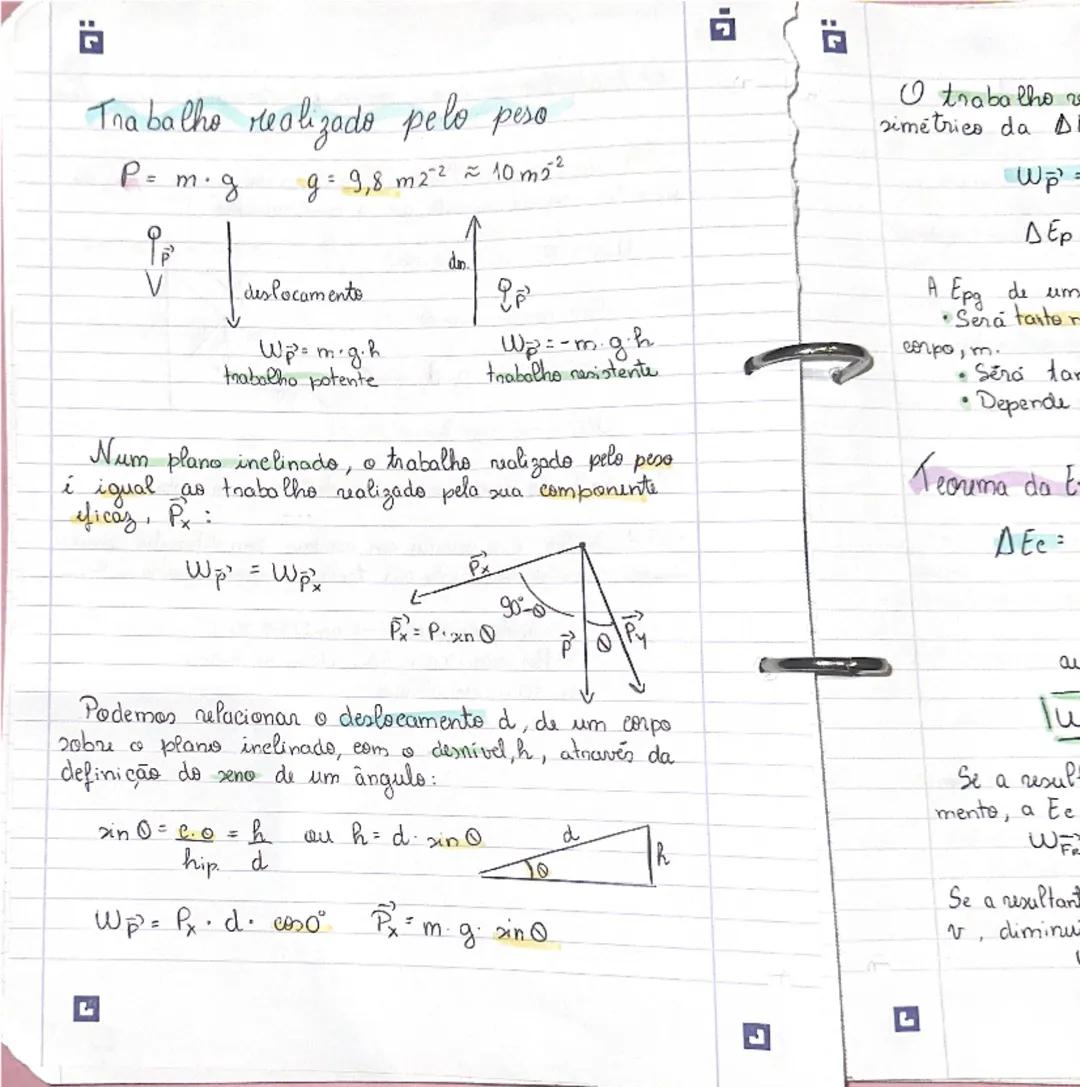 Trabalho realizado pelo peso
P = m · g    g = 9,8 ms⁻² ≈ 10 ms⁻²
P⃗
deslocamento
W P⃗ = m · g · h
trabalho potente
P⃗
W P⃗ = - m · g · h
trabalho resistente
Num plano inclinado, o trabalho realizado pelo peso
é igual ao trabalho realizado pela sua componente
eficaz, P⃗x :
W P⃗ = W P⃗x
P⃗x
90°-θ
P⃗x = P · sin θ
P⃗
θ
P⃗y
Podemos relacionar o deslocamento d, de um corpo
sobre o plano inclinado, com o desnível, h, através da
definição do seno de um ângulo:
sin θ = c.o / hip. = h / d    ou h = d · sin θ
d
θ
h
W P⃗ = Px · d · cos0°    P⃗x = m · g · sin θ
O trabalho
simétrico da
W P⃗ =
Δ Ep
A Epg de um
• Será tanto
corpo, m.
• Será
• Depende
Teorema da
Δ Ec =
Se a
mento, a Ec
W
Se a
v, diminui